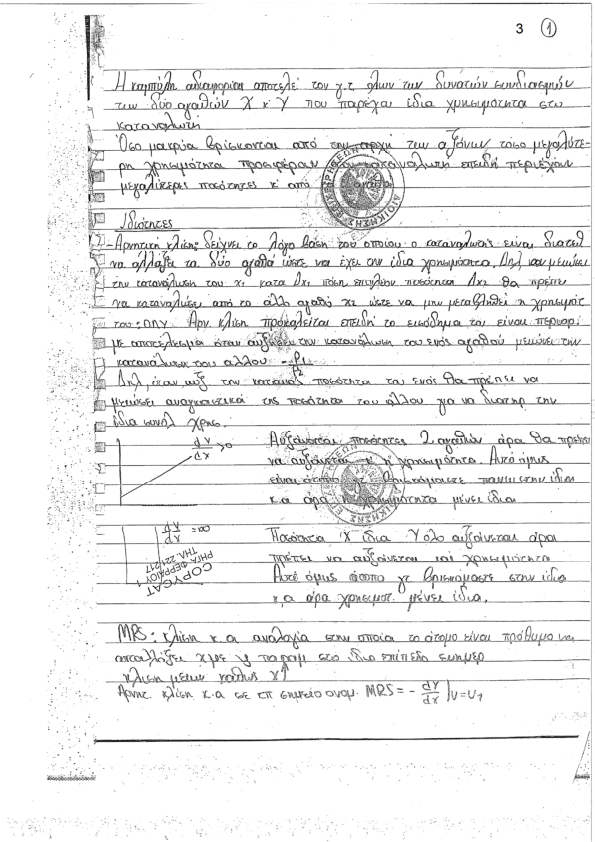 3 ①
Η καμπύλη αδιαφορίας αποτελεί τον γ.τ. όλων των δυνατών συνδιασμών
των δύο αγαθών Χ κ' Υ που παρέχει ίδια χρησιμότητα στο
καταναλωτή
Όσο μακρύα βρίσκονται από την αρχή των αξόνων τόσο μεγαλύτε-
ρη χρησιμότητα προσφέρουν στον καταναλωτή επειδή περιέχουν
μεγαλύτερες ποσότητες κ' από 2 αγαθά
Ιδιότητες
- Αρνητική κλίση: δείχνει το λόγο βάση του οποίου ο καταναλωτής είναι διατεθ
να αλλάξει τα δύο αγαθά ώστε να έχει την ίδια χρησιμότητα. Δηλ μειώσει
την κατανάλωση του x1 κατα Δx1 πόση επιπλέον ποσότητα Δx2 θα πρέπει
να καταναλώσει από το άλλο αγαθό x2 ώστε να μην μεταβληθεί η χρησιμότ
του: ΟΠΥ. Αρν κλίση προκαλείται επειδή το εισόδημα του είναι περιορ:
με αποτέλεσμα όταν αυξήσει την κατανάλωση του ενός αγαθού μειώνει την
κατανάλωση του άλλου - P1/P2
Δηλ, όταν αυξ την καταναλ ποσότητα του ενός θα πρέπει να
μειώσει αναγκαστικά της ποσότητα του άλλου για να διατηρ την
ίδια συνολ χρησ.
dY/dX >0
Αυξάνονται ποσότητες 2 αγαθών άρα θα πρέπει
να αυξάνεται κ' η χρησιμότητα. Αυτό όμως
είναι άτοπο γτ βρισκόμαστε πάνω στην ίδια
κ.α άρα η χρησιμότητα μένει ίδια
dY/dX =∞
Ποσότητα Χ ίδια Υ όλο αυξάνεται άρα
πρέπει να αυξάνεται και χρησιμότητα
Αυτό όμως άτοπο γτ βρισκόμαστε στην ίδια
κ.α άρα χρησιμοτ. μένει ίδια.
COPYCAT
ΡΗΓΑ ΦΕΡΡΑΙΟΥ 1
ΤΗΛ. 221.217
MRS: κλίση κ.α αναλογία στην οποία το άτομο είναι πρόθυμο να
ανταλλάξει χ με y παραμ στο ίδιο επίπεδο ευημερ
κλίση μειών καθώς χ↑
Αρνητ. κλίση κ.α σε επ σημείο ονομ. MRS = - dY/dX | U=U1